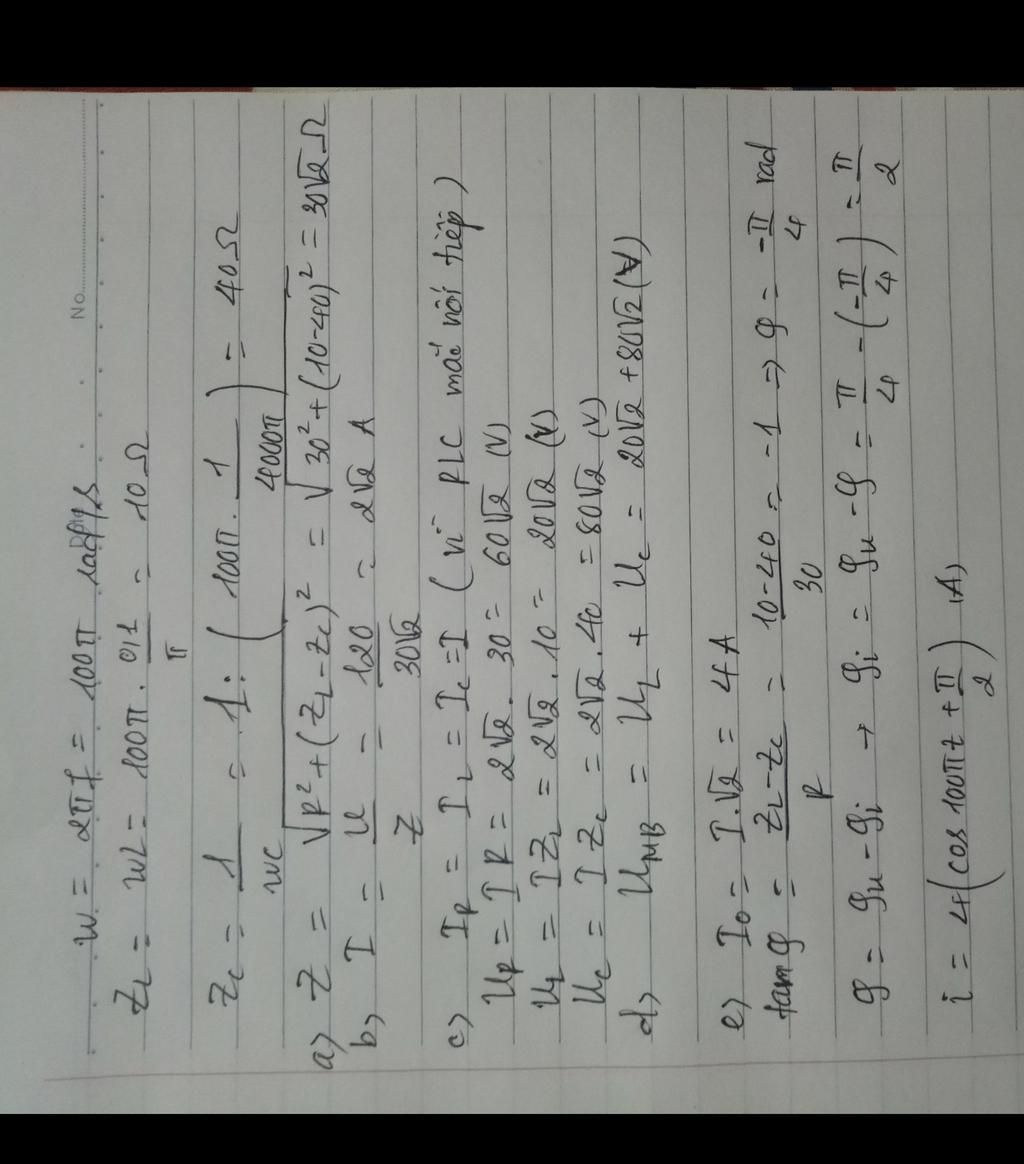 No
ω = 2πf = 100π rad/s
Z_L = ωL = 100π . 0,1/π = 10Ω
Z_C = 1/ωC = 1 : (100π . 1/4000π) = 40Ω
a) Z = √(R² + (Z_L - Z_C)²) = √(30² + (10-40)²) = 30√2 Ω
b) I = U/Z = 120/30√2 = 2√2 A
c) I_R = I_L = I_C = I (vì RLC mắc nối tiếp)
U_R = I R = 2√2 . 30 = 60√2 (V)
U_L = I Z_L = 2√2 . 10 = 20√2 (V)
U_C = I Z_C = 2√2 . 40 = 80√2 (V)
d) U_MB = U_L + U_C = 20√2 + 80√2 (V)
e) I₀ = I.√2 = 4A
tan φ = Z_L - Z_C/R = 10-40/30 = -1 => φ = -π/4 rad
φ = φ_u - φ_i → φ_i = φ_u - φ = π/4 - (-π/4) = π/2
i = 4(cos 100πt + π/2) (A)